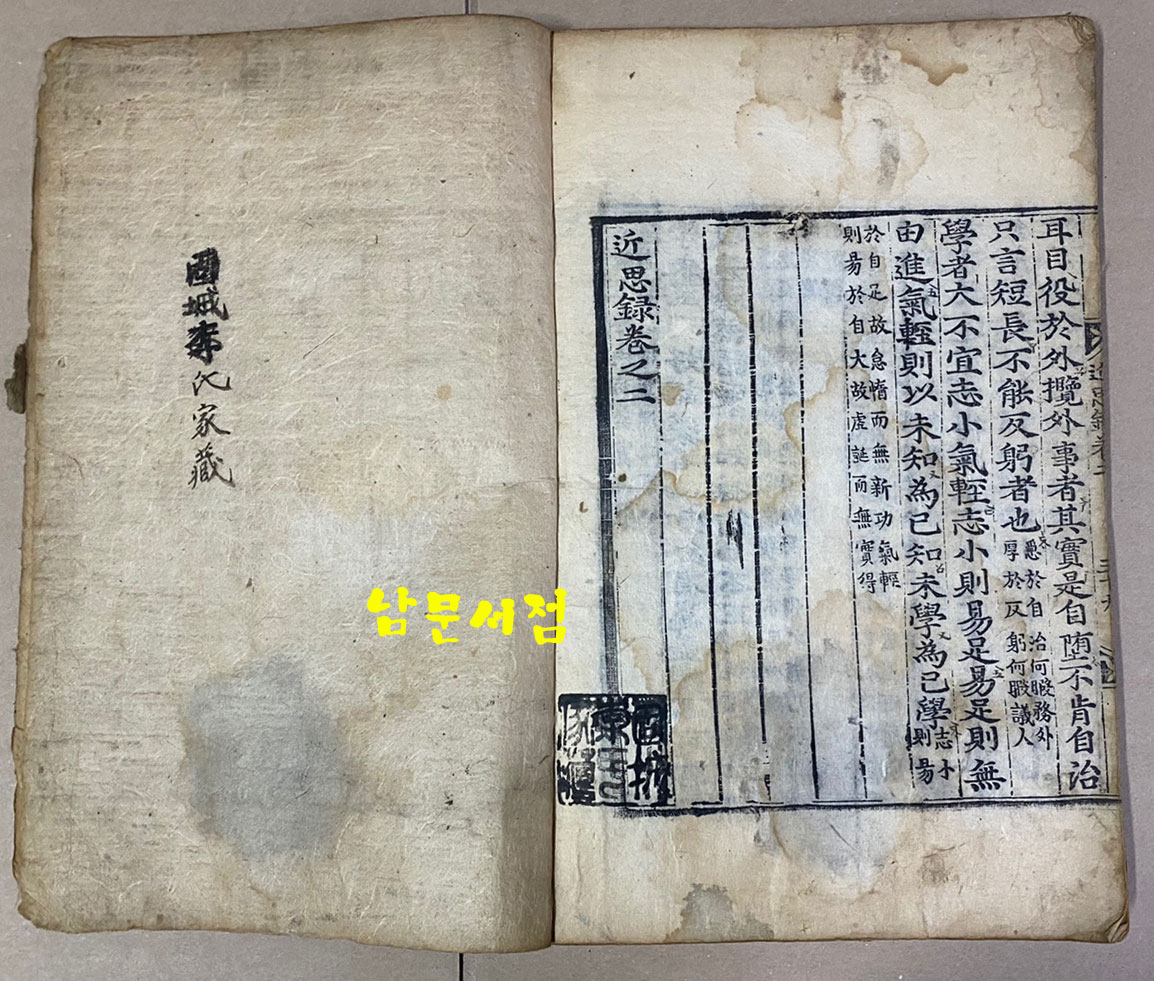 耳目役於外攬外事者其實是自堕不肯自治
只言短長不能反躬者也
於自治何暇務外
厚於反躬何暇議人
學者大不宜志小氣輕志小則易足易足則無
由進氣輕則以未知為已知未學為已學
志小
則易
於自足故怠惰而無新功氣輕
則易於自大故虛誕而無實得
近思録卷之二
近思録卷二
固城李氏家藏
남문서점